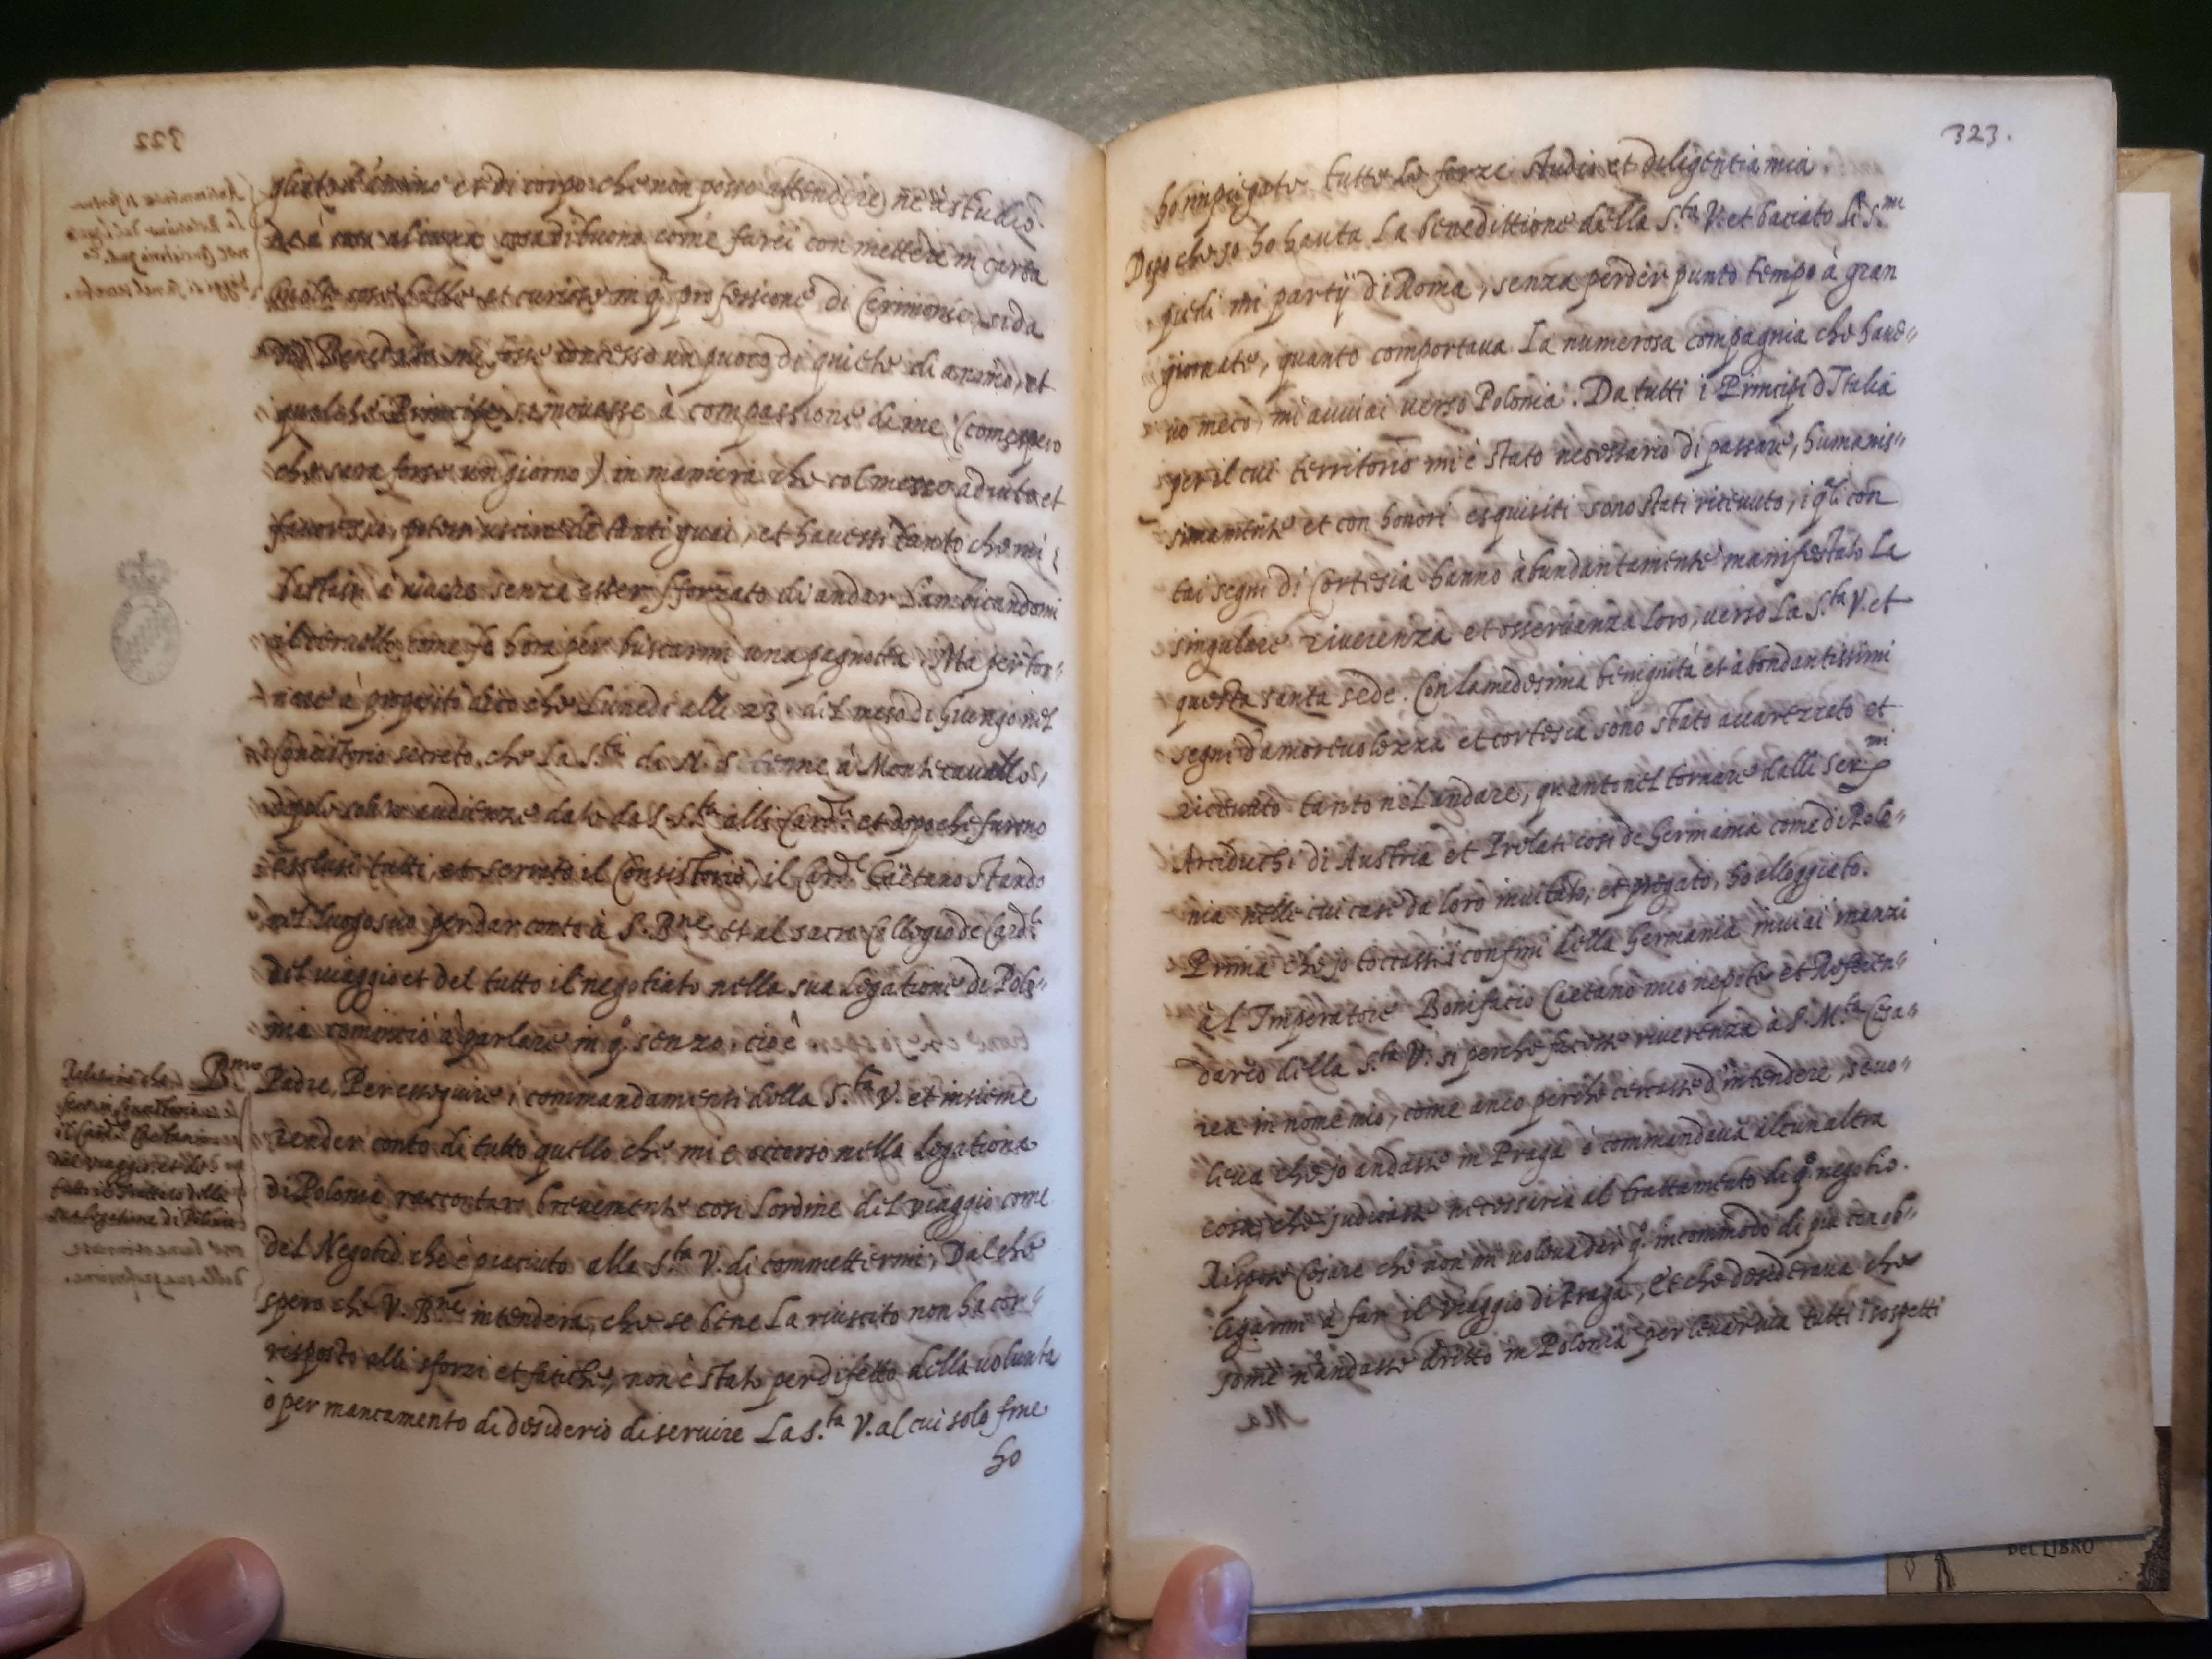 gliato d'animo et di corpo che non posso attendere ne à studio
ne à cosa alcuna buona come farei con mettere in carta
molte cose belle et curiose in q.ª professione di Cerimonie, se da
mi fosse concesso un puoco di quiete di animo, et
qualche Principe si movesse à compassione di me (come spero
che sara forse un giorno) in maniera che col mezzo adiuto et
favor suo, potessi uscire de tanti guai, et havessi tanto che mi
bastassi à vivere senza esser sforzato di andar lambicandomi
il cervello come fo hora per buscarmi una pagnotta. Ma per tor„
nare à proposito dico che Lunedi alli 23. del mese di Giungo nel
Concistorio secreto, che La S.tà di N. S. tenne à Monte cavallo,
dopo le solite audienze date da S. S.ta alli Card.li et dopo che furono
esclusi tutti, et serrato il Consistorio, il Card.l Caëtano stando
nel luogo suo per dar conto à S. B.ne et al sacro Collegio de Card.li
del viaggio et del tutto il negotiato nella sua Legatione di Polo„
nia cominciò à parlare in q.º senzo, cioè
B.mo Padre, Per esseguire i commandamenti della S.ta V. et insieme
render conto di tutto quello che mi è occorso nella legatione
di Polonia raccontaro brevemente cosi l'ordine del viaggio come
del Negotio che è piaciuto alla S.ta V. di commettermi, Dal che
spero che V. B.ne intendera, che se bene La riuscito non ha cor„
risposto alli sforzi et fatiche, non è stato per difetto della volunta
ò per mancamento di desiderio di servire La S.ta V. al cui solo fine
ho
Relatione che
fece in
il Card.l Caetano
del viaggio, et del
tutto il trattato della
sua legatione di Polonia
323.
ho impiegato tutte le forze studio et diligentia mia.
Dopo che io ho havuta La benedittione della S.ta V. et baciato li S.mi
piedi mi partij di Roma, senza perder punto tempo à gran
giornate, quanto comportava La numerosa compagnia che have„
vo meco, mi avviai verso Polonia. Da tutti i Principi d'Italia
per il cui territorio mi è stato necessario di passare, humanis„
simamente et con honori esquisiti sono stati ricevuto, i q.li con
tai segni di Cortesia hanno abundantamente manifestato La
singulare riverenza et osservanza loro, verso La S.ta V. et
questa santa sede. Con la medesima benignità et abondantissimi
segni d'amorevolezza et cortesia sono stato accarezzato et
ricevuto tanto nel andare, quanto nel tornare dalli Ser.mi
Arciduchi di Austria et Prelati cosi de Germania come di Polo„
nia nelle cui case da loro invitato, et pregato, ho alloggiato.
Prima che io toccassi i confini della Germania inviai inanzi
à L'Imperatore Bonifatio Caetano mio nepote et Referen„
dario della S.ta V. si perche facesse riverenza à S. M.ta Cesa„
rea in nome mio, come anco perche cercasse d'intendere, se vo„
leva che io andasse in Praga ò commandava alcun altra
cosa, che judicasse necessaria al trattamento di q.º negotio.
Rispose Cesare che non mi voleva dar q.º incommodo di più con ob„
ligarmi à far il viaggio di Praga, Et che desiderava che
io me n'andasse dritto in Polonia per levar via tutti i sospetti